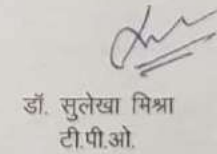 डॉ. सुलेखा मिश्रा
टी.पी.ओ.